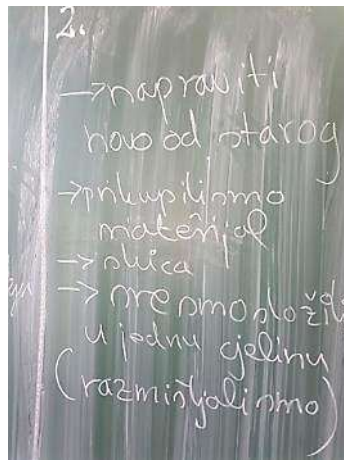 2.
→ napraviti
novo od starog
→ prikupili smo
materijal
→ skica
→ sve smo složili
u jednu cjelinu
(razmišljali smo)